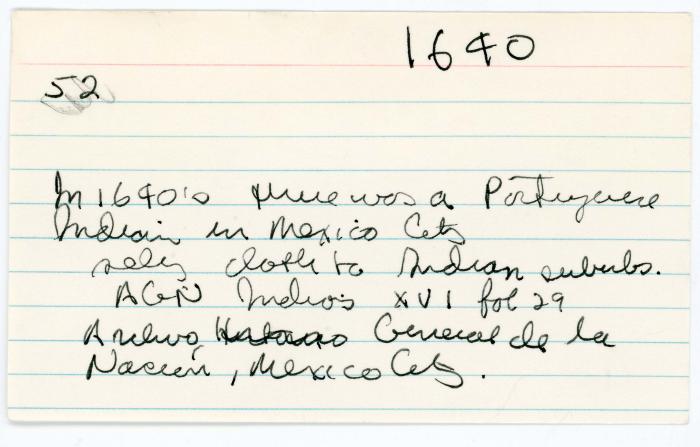 1640
52
In 1640's there was a Portuguese
Indian in Mexico City
selling cloth to Indian suburbs.
AGN Indios XVI fol 29
Archivo General de la
Nación, Mexico City.